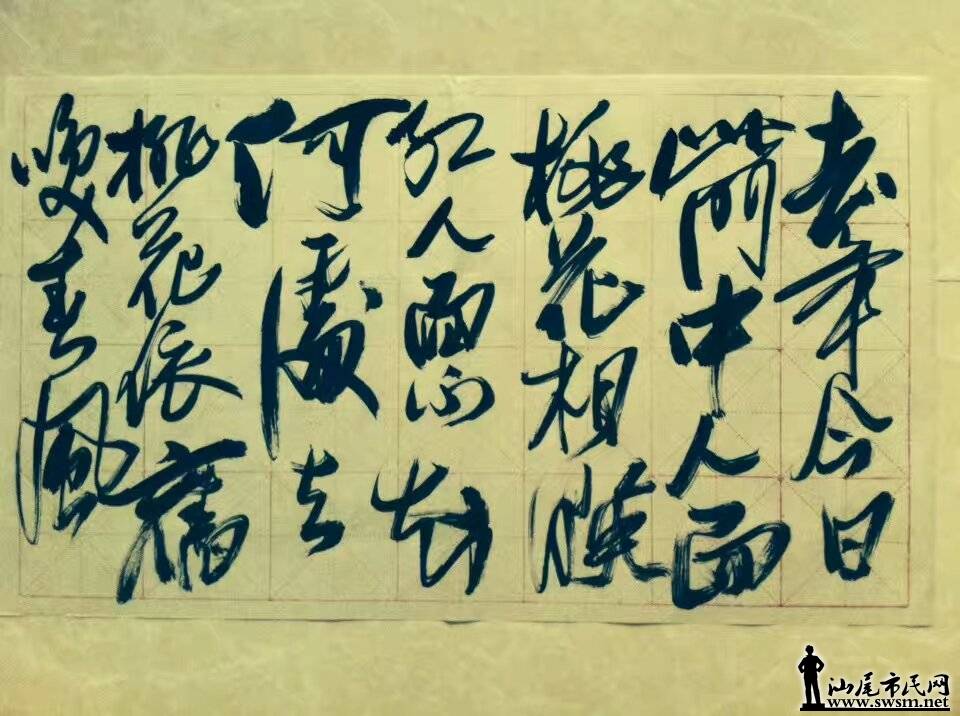 去年今日
此門中人面
桃花相映
红人面不知
何處去
桃花依舊
咲春風
汕尾市民网
www.swsm.net